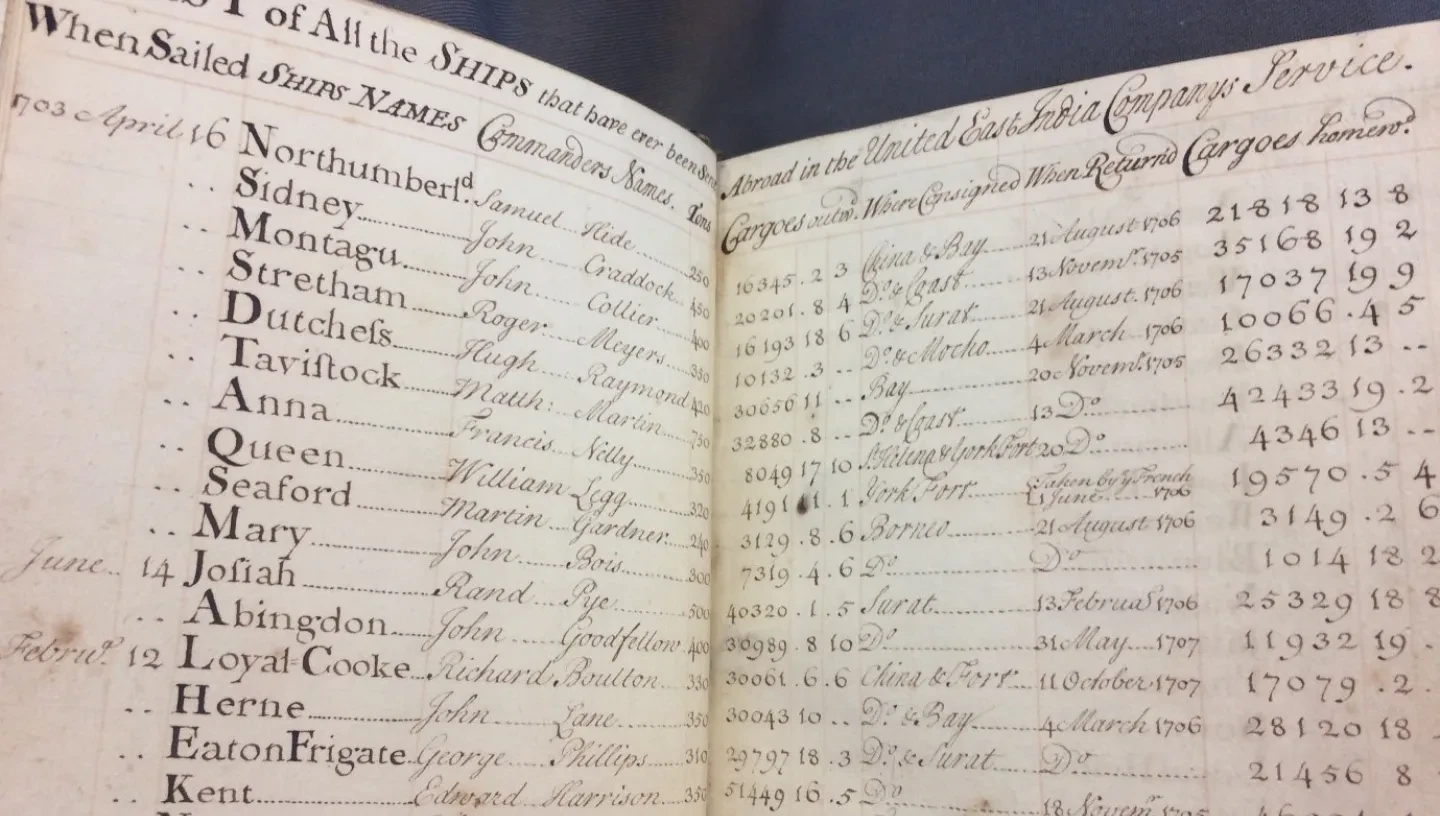 of All the SHIPS that have ever been Sent
When Sailed SHIPS NAMES Commanders Names. Tons
1703 April 16 Northumberl.d Samuel Hide 250
.. Sidney John Craddock 450
.. Montagu John Collier 400
.. Stretham Roger Meyers 350
.. Dutcheſs Hugh Raymond 420
.. Taviſtock Matth: Martin 750
.. Anna Francis Nelly 350
.. Queen William Legg 320
.. Seaford Martin Gardner 240
.. Mary John Bois 300
June 14 Joſiah Rand Pye 500
.. Abingdon John Goodfellow 400
Febru.y 12 Loyal=Cooke Richard Boulton 330
.. Herne John Lane 350
.. Eaton Frigate George Phillips 310
.. Kent Edward Harrison 350
Abroad in the United East India Companys Service.
Cargoes outw.d Where Consigned When Return'd Cargoes homew.d
16345 . 2 3 China & Bay 21 August 1706 21818 13 8
20201 . 8 4 D.o & Coast 13 Novem.r 1705 35168 19 2
16193 18 6 D.o & Surat 21 August 1706 17037 19 9
10132 . 3 -- D.o & Mocho 4 March 1706 10066 . 4 5
30656 11 -- Bay 20 Novem.r 1705 26332 13 --
32880 . 8 -- D.o & Coast 13 D.o 42433 19 . 2
8049 17 10 S.t Helena & York Fort 20 D.o 4346 13 --
4191 11 . 1 York Fort Taken by y.e French 1 June 1706 19570 . 5 4
3129 . 8 . 6 Borneo 21 August 1706 3149 . 2 6
7319 . 4 . 6 D.o D.o 1014 18 2
40320 . 1 . 5 Surat 13 Februa.y 1706 25329 18 8
30989 . 8 10 D.o 31 May 1707 11932 19 .
30061 . 6 . 6 China & Fort 11 October 1707 17079 . 2 .
30043 10 -- D.o & Bay 4 March 1706 28120 18
29797 18 . 3 D.o & Surat D.o 21456 8
51449 16 . 5 D.o 18 Novem.r 1705